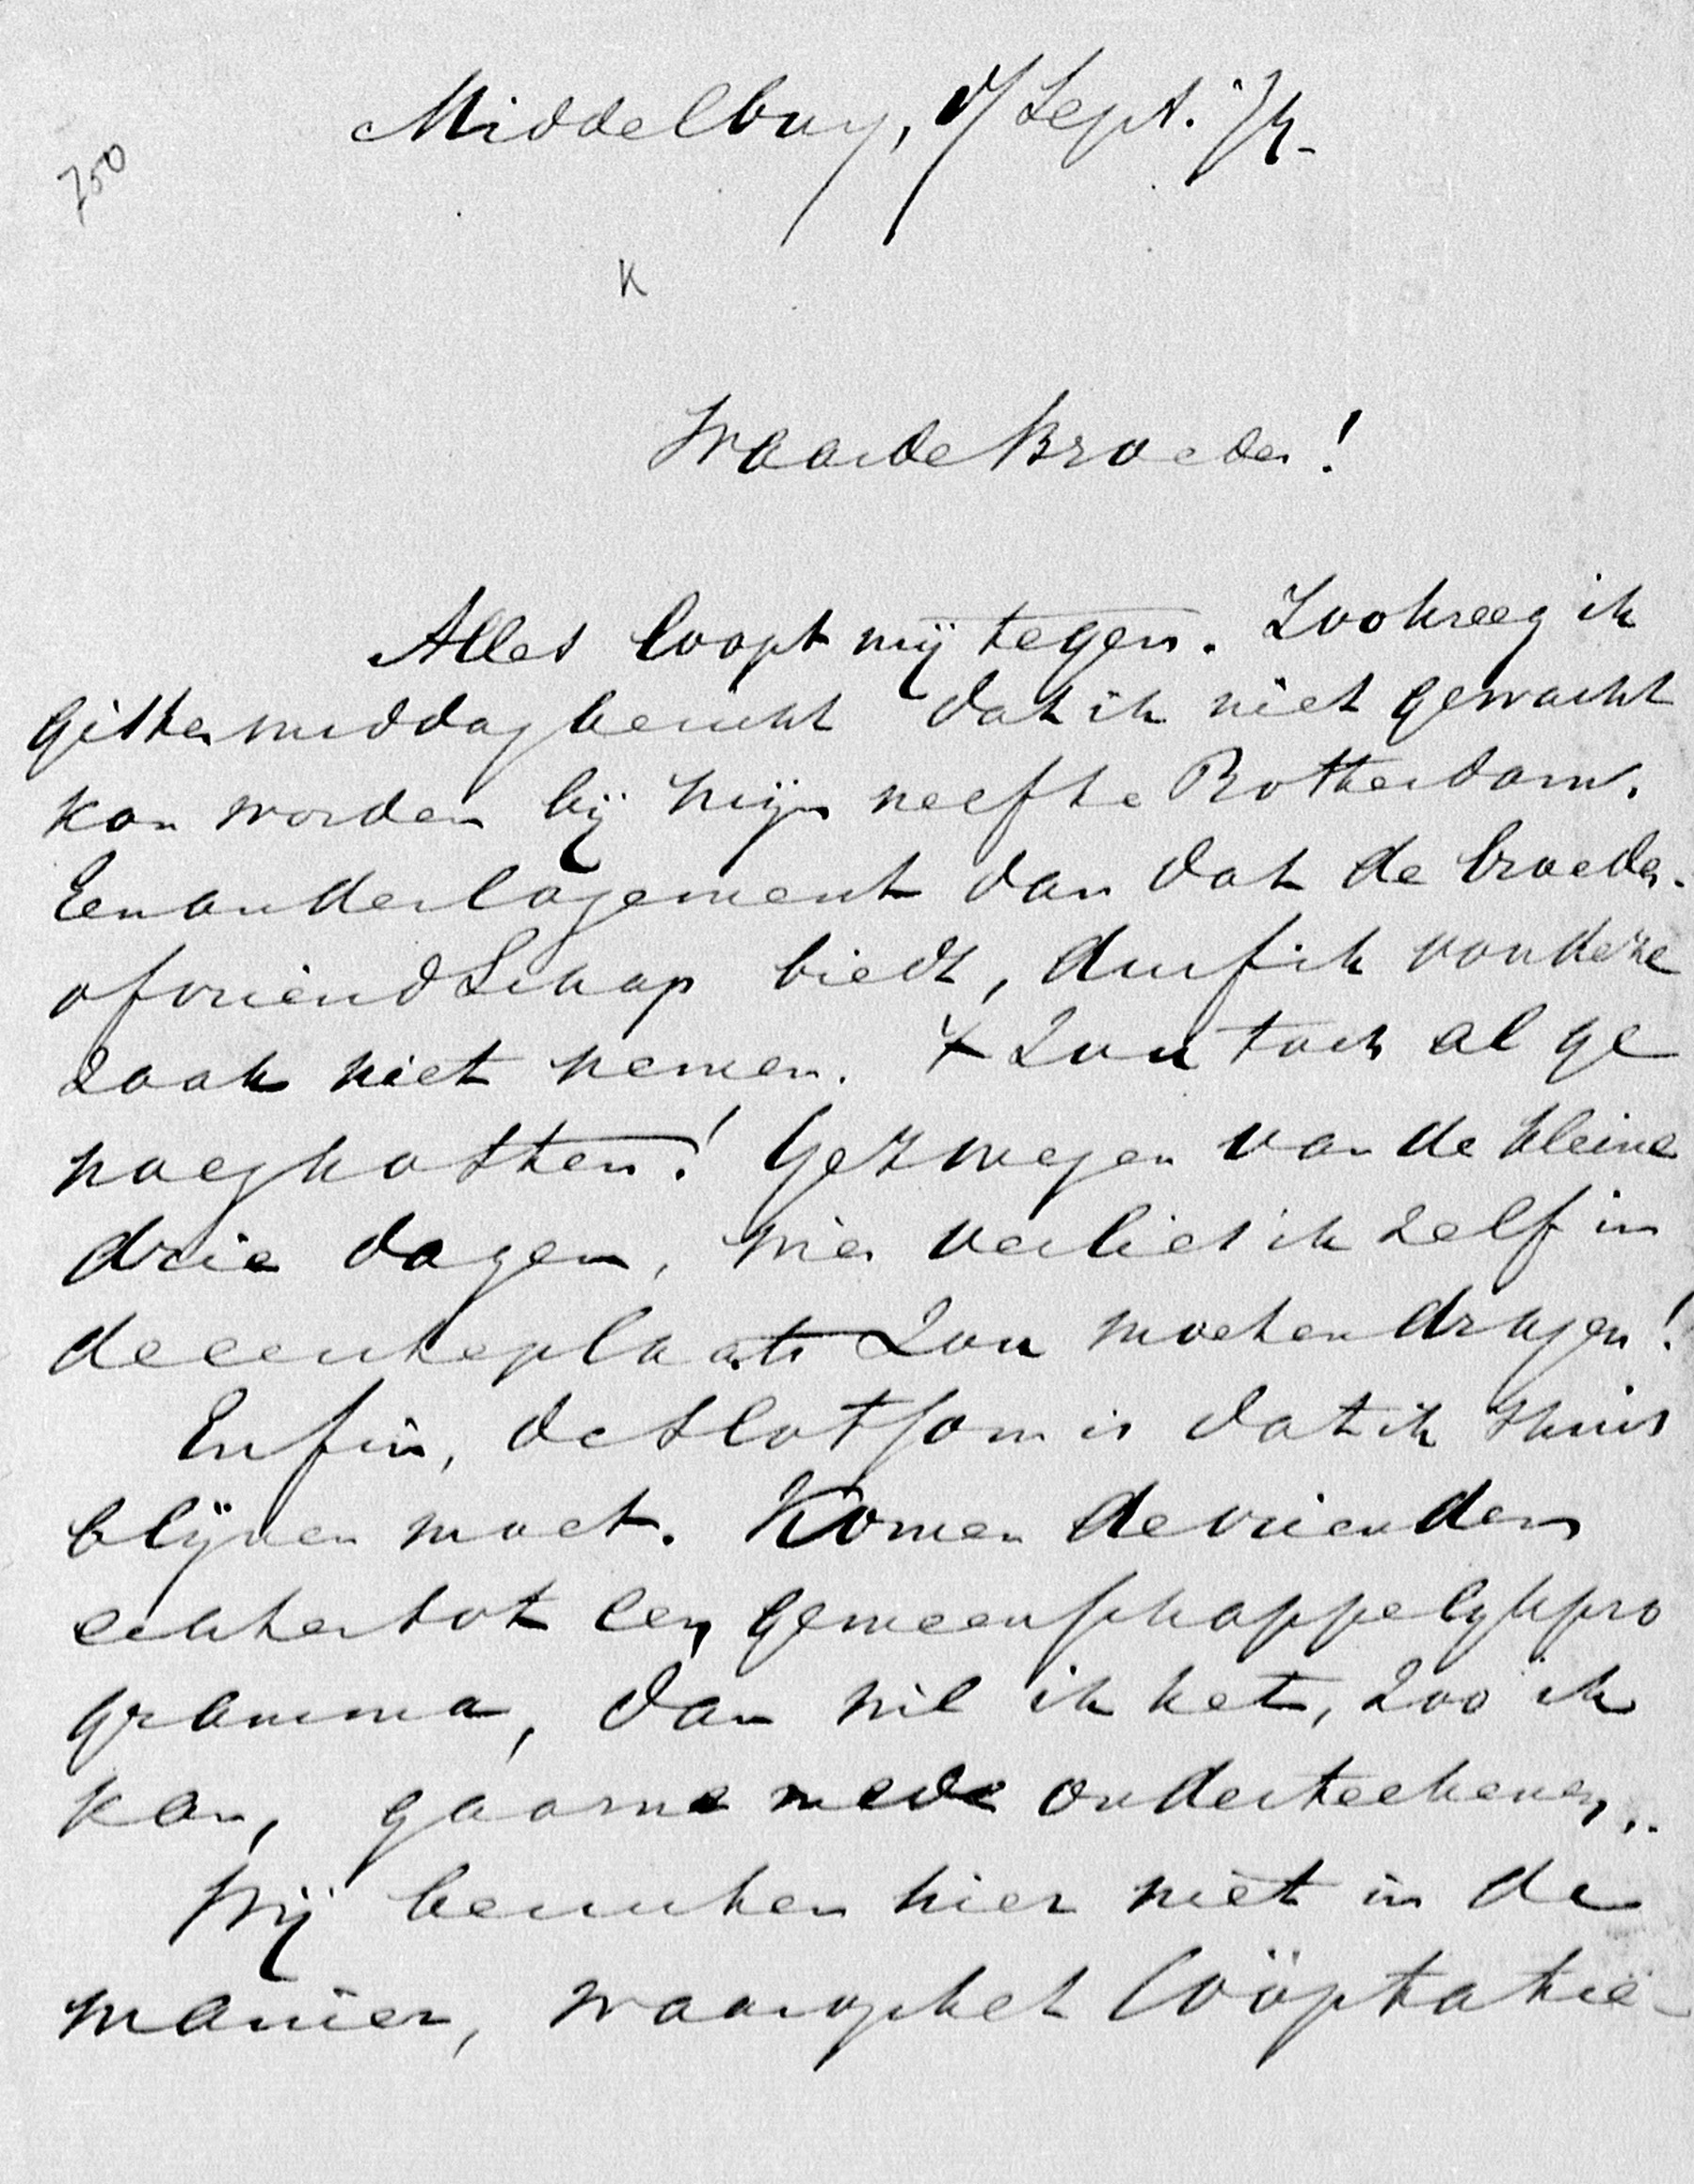 750
Middelburg, 9/ Sept. '74
K
Waarde Broeder!
Alles loopt mij tegen. Zoo kreeg ik
gister middag bericht dat ik niet gewacht
kon worden bij mijn neef te Rotterdam.
Een ander logement dan dat de broeder-
of vriendschap biedt, durf ik van deze
zaak niet nemen. 't Zou toch al ge
noeg kosten! Gezwegen van de kleine
drie dagen, wier verlies ik zelf in
de eerste plaats zou moeten dragen!
Enfin, de slotsom is dat ik thuis
blijven moet. Komen de vrienden
echter tot een gemeenschappelijk pro
gramma, dan wil ik het, zoo ik
kan, gaarne mede onderteekenen..
Wij berusten hier niet in de
manier, waarop het Coöptatie-